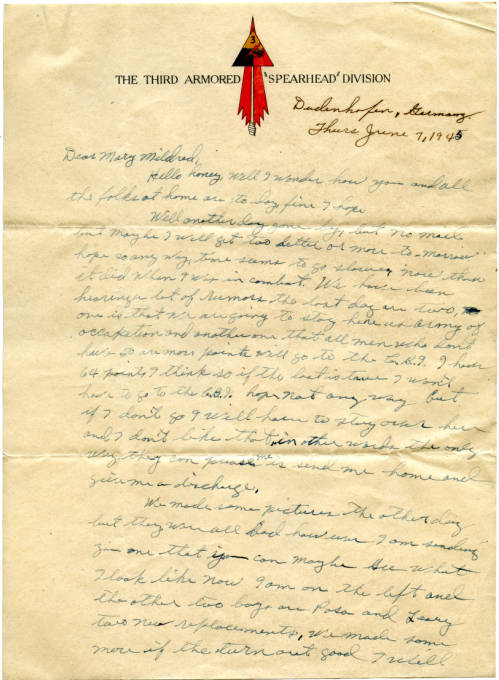 3
THE THIRD ARMORED "SPEARHEAD" DIVISION
Dudenhofen, Germany.
Thurs June 7, 1945
Dear Mary Mildred,
Hello honey, Well I wonder how you and all
the folks at home are to day fine I hope
Well another day gone by, but no mail
but maybe I will get two letter or more to-morrow
hope so any way, time seams to go slower now than
it did when I was in combat. We have been
hearing a lot of rumors the last day are two,
one is that we are going to stay here as army of
occupation and another one that all men who don't
have 50 are more points will go to the C.B.I. I have
64 points I think so if the last is true I won't
have to go to the C.B.I. hope not any way but
if I don't go I will have to stay over here
and I don't like that, in other words the only
way they can please me is send me home and
give me a discharge.
We made some pictures the other day
but they were all bad how ever I am sending
you one that you can maybe see what
I look like now I am on the left and
the other two boys are Posa and Leary
two new replacements, We made some
more if the turn out good I will